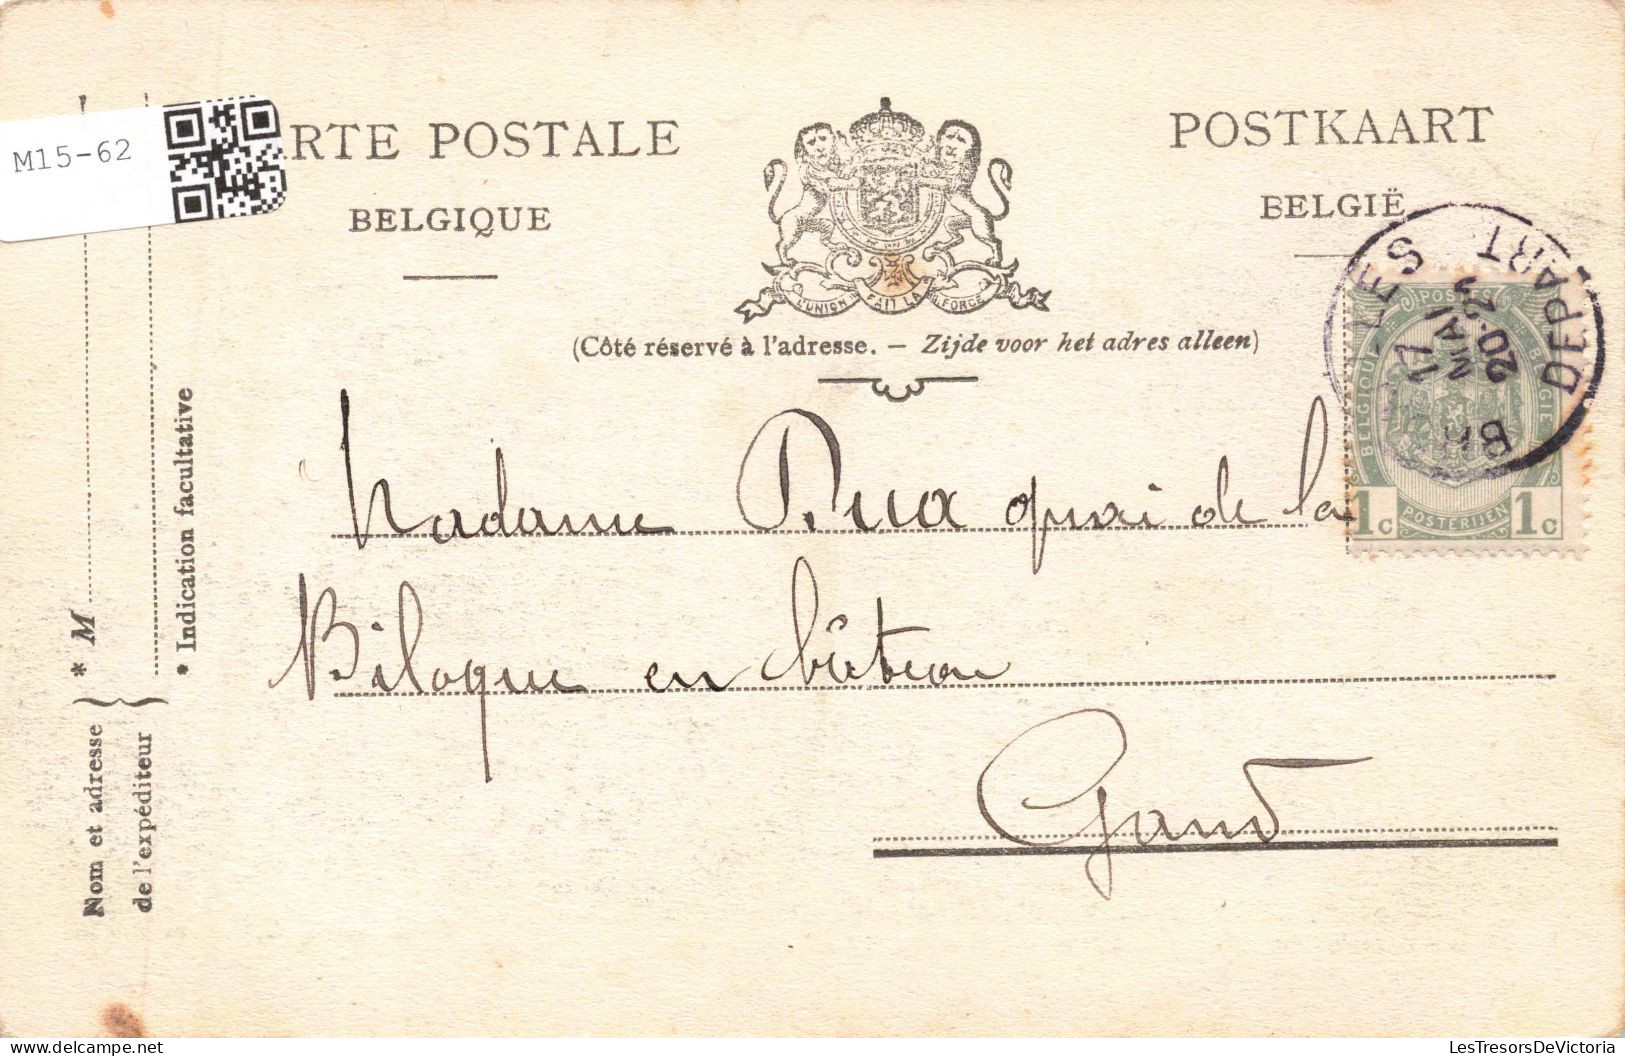 M15-62
RTE POSTALE
BELGIQUE
L'UNION FAIT LA FORCE
POSTKAART
BELGIË
(Côté réservé à l'adresse. — Zijde voor het adres alleen)
LES DEPART
17
MAI
20-21
POSTES
BELGIQUE BELGIE
1c POSTERIJEN 1c
Madame quai de la
Biloque en
Gand
Nom et adresse
de l'expéditeur
* M
* Indication facultative
LesTresorsDeVictoria
delcampe.net